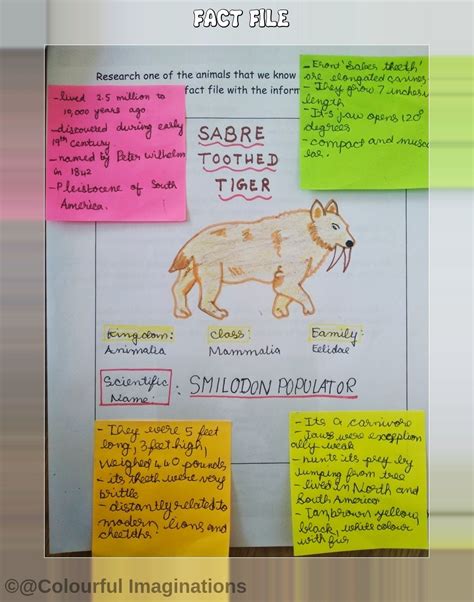 FACT FILE
Research one of the animals that we know
fact file with the inform
- lived 2.5 million to
10,000 years ago
- discovered during early
19th century
- named by Peter Wilhelm
in 1842
- Pleistocene of South
America.
- Front 'Saber theeth'
are elongated canines
- They grow 7 inches
length
- It's jaw opens 120°
degrees
- compact and musc
lar.
SABRE
TOOTHED
TIGER
Kingdom:
Animalia
Class:
Mammalia
Family:
Felidae
Scientific
Name:
: SMILODON POPULATOR
- They were 5 feet
long, 3 feet high,
weighed 440 pounds
- its theeth were very
brittle
- distantly related to
modern lions and
cheetahs.
- Its a carnivore
- Jaws were exception
ally weak
- hunts its prey by
jumping from tree
- lived in North and
South America
- Tanbrown yellow,
black, white colour
with fur
©@Colourful Imaginations